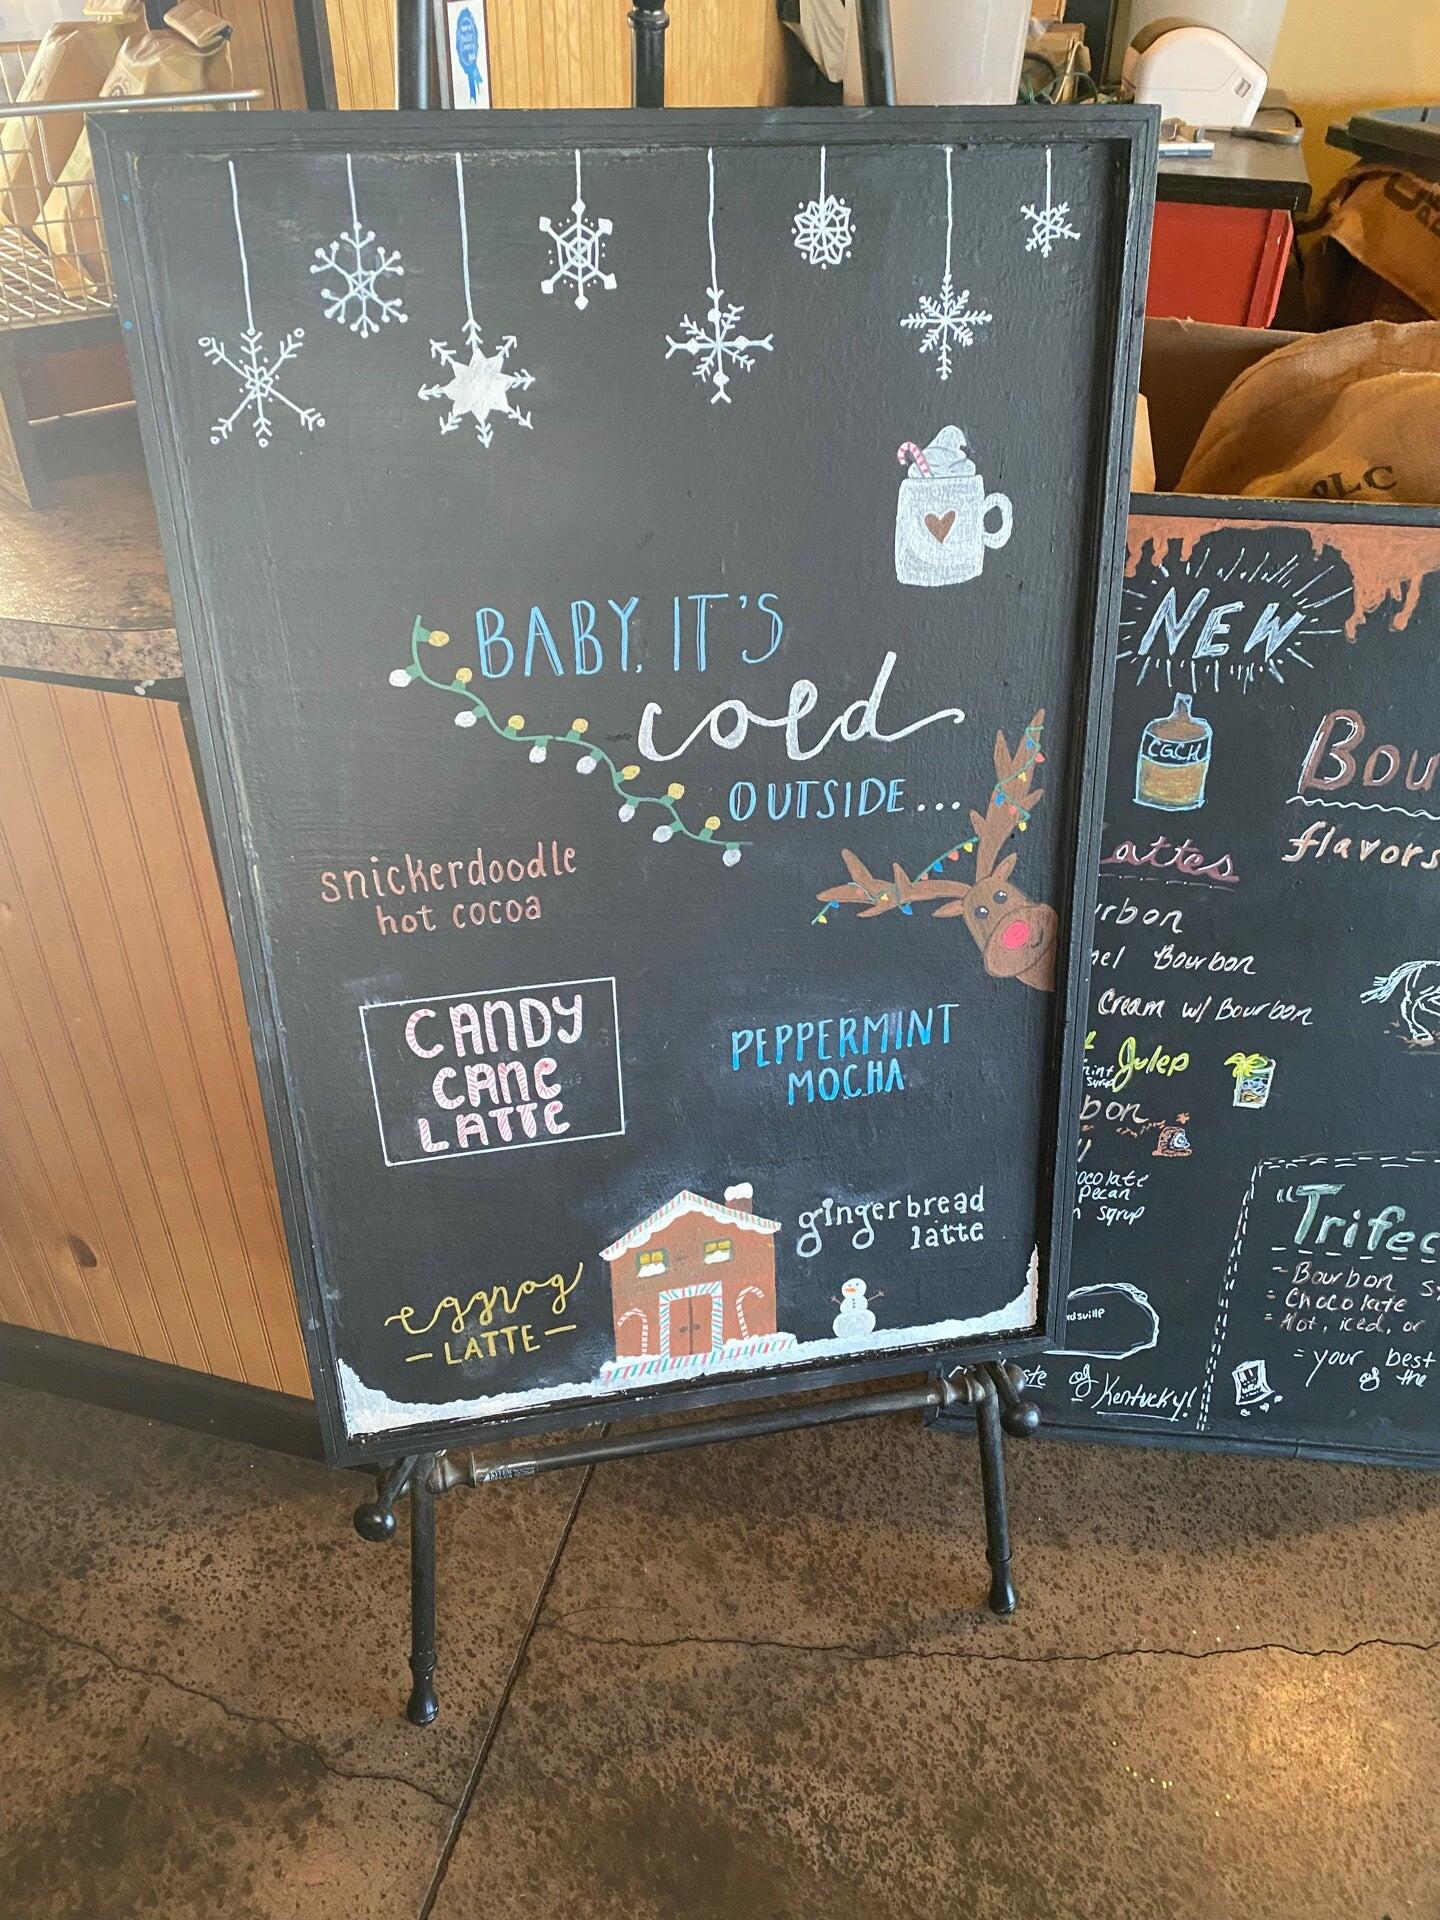 BABY, IT'S
cold
OUTSIDE...
snickerdoodle
hot cocoa
CANDY
CANE
LATTE
PEPPERMINT
MOCHA
gingerbread
latte
eggnog
- LATTE -
NEW
CGCH
Bou
flavors
attes
rbon
el Bourbon
Cream w/ Bourbon
Julep
bon
ocolate
Pecan
syrup
"Trifec
- Bourbon
- Chocolate
- Hot, iced, or
- your best
of the
of Kentucky!